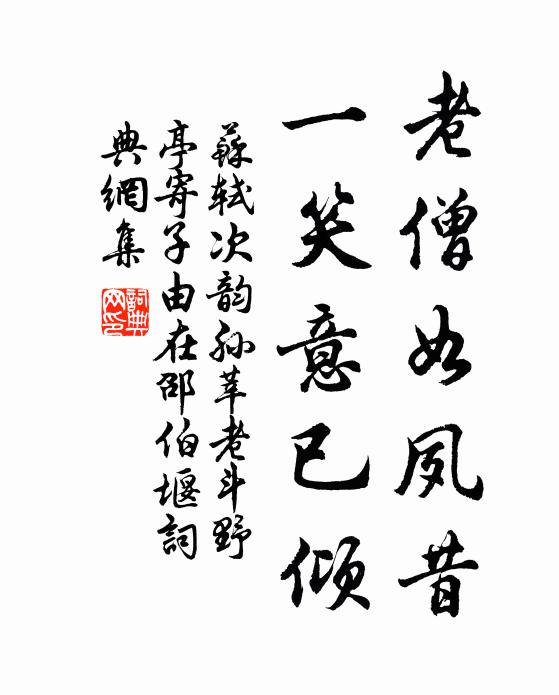 老僧如夙昔
一笑意已倾
蘇轼次韵孙莘老斗野
亭寄子由在邵伯堰詞
典網集
詞典
网印